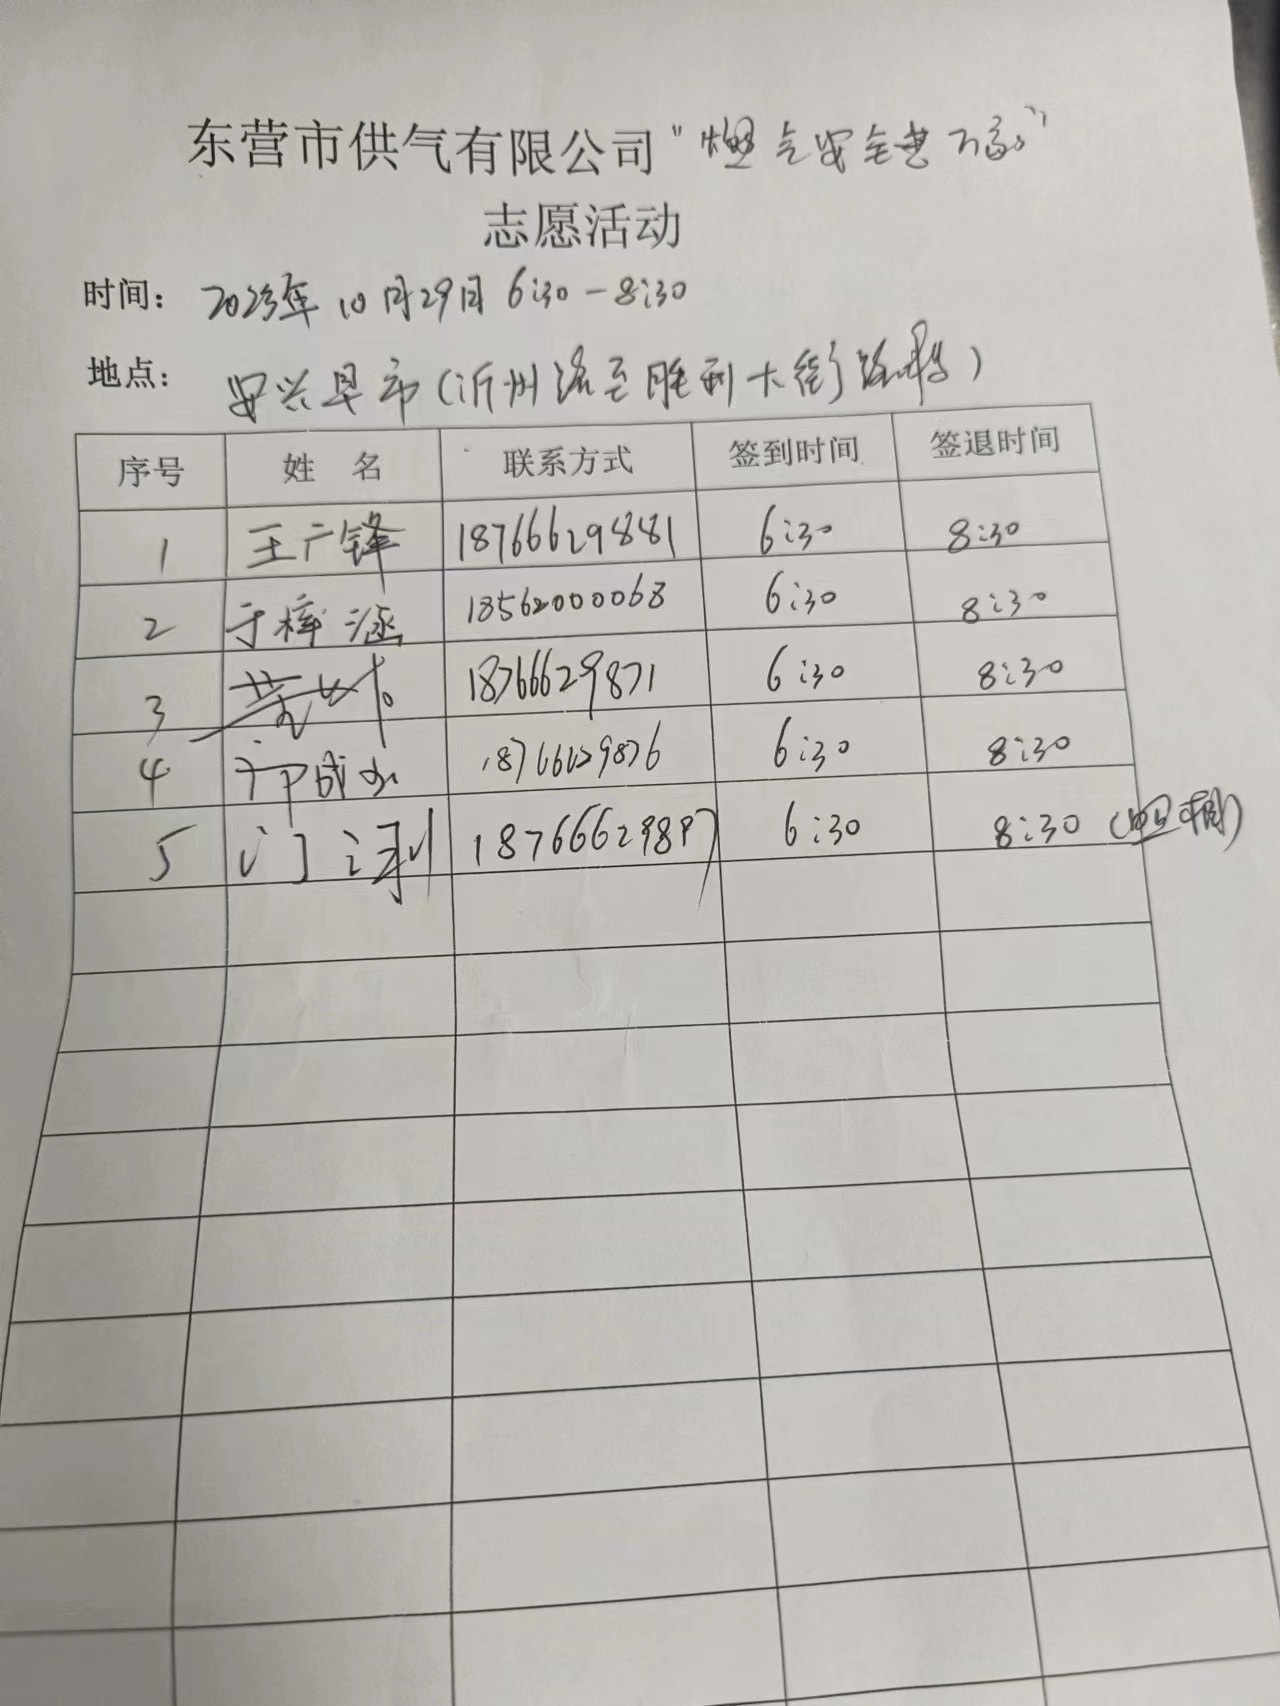 东营市供气有限公司"燃气安全进万家"
志愿活动
时间: 2023年10月29日 6:30-8:30
地点: 安兴早市(沂州路至胜利大街路段)
序号 姓名 联系方式 签到时间 签退时间
1 王广锋 18766629881 6:30 8:30
2 于梓涵 18562000068 6:30 8:30
3 18766629871 6:30 8:30
4 18766629876 6:30 8:30
5 门 18766629897 6:30 8:30 (照相)